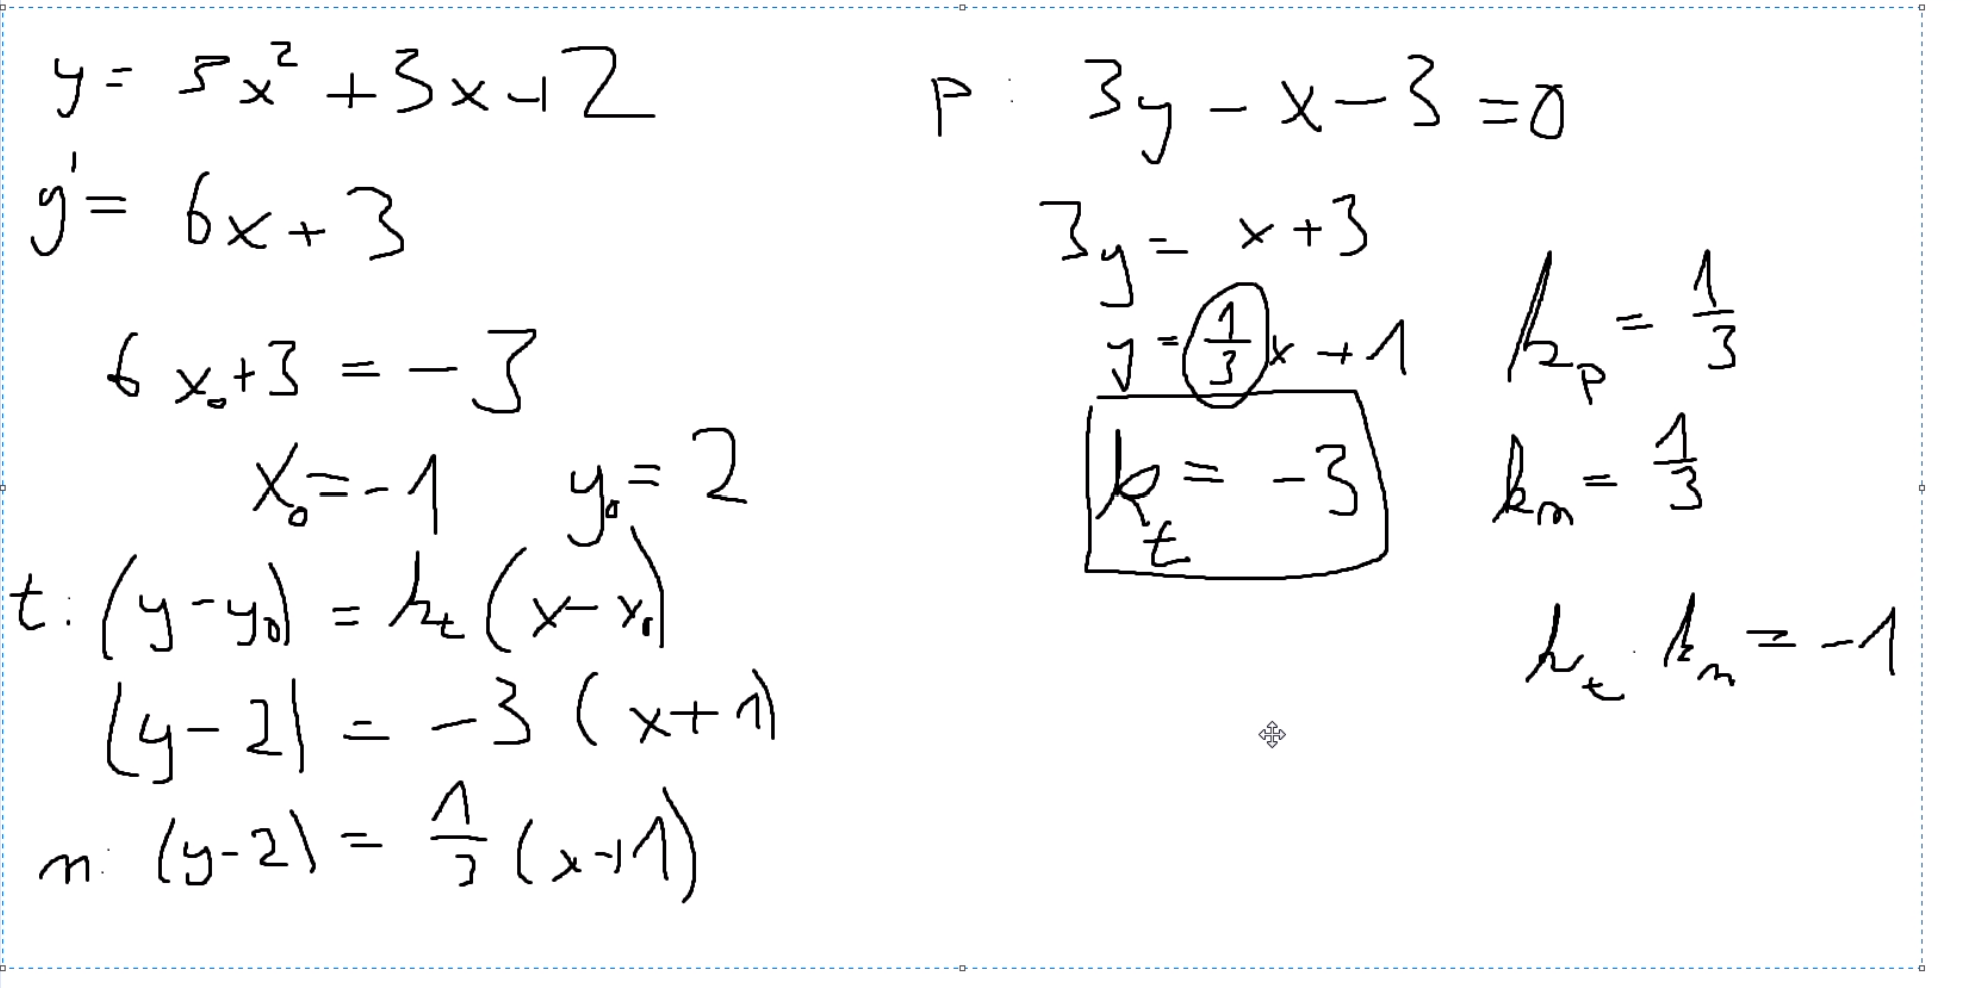 y = 3x² + 3x + 2
y' = 6x + 3
6x₀ + 3 = -3
x₀ = -1 y₀ = 2
t: (y - y₀) = kₜ (x - x₀)
(y - 2) = -3 (x + 1)
n: (y - 2) = 1/3 (x + 1)
p: 3y - x - 3 = 0
3y = x + 3
y = 1/3 x + 1
kₚ = 1/3
kₜ = -3
kₙ = 1/3
kₜ · kₙ = -1